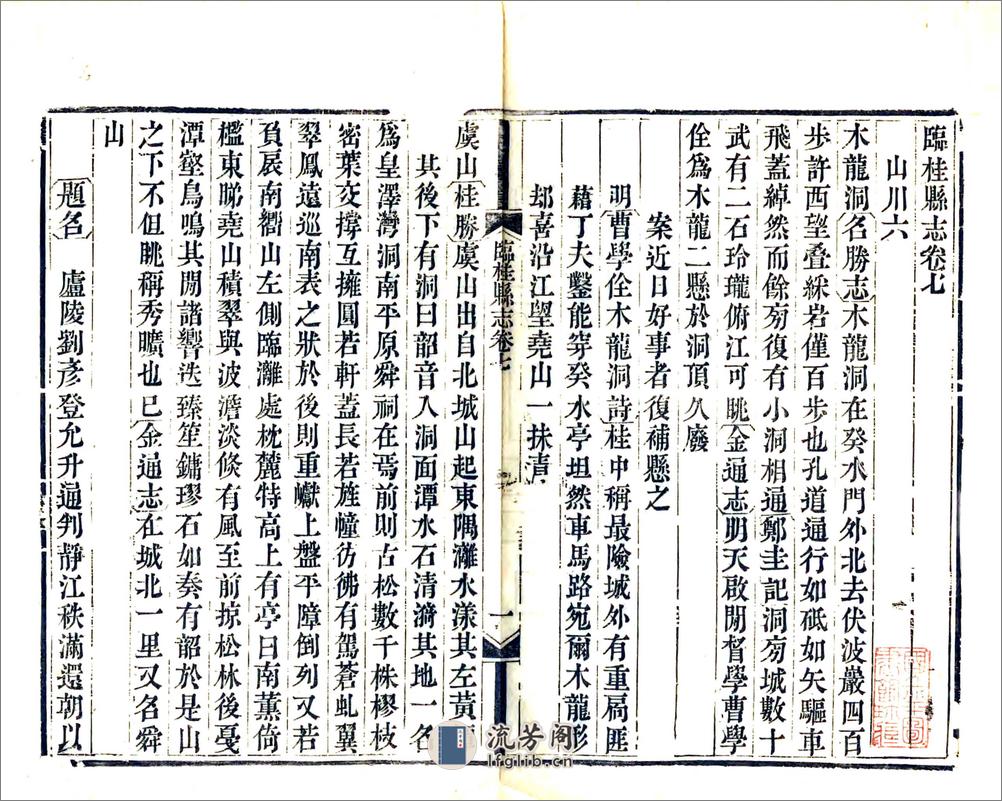 臨桂縣志卷七
山川六
木龍洞名勝志木龍洞在癸水門外北去伏波巖四百
步許西望叠綵岩僅百步也孔道通行如砥如矢驅車
飛蓋綽然而餘旁復有小洞相通鄭圭記洞旁城數十
武有二石玲瓏俯江可眺金通志明天啟閒督學曹學
佺爲木龍二懸於洞頂久廢
案近日好事者復補懸之
明曹學佺木龍洞詩桂中稱最險城外有重扃匪
藉丁夫鑿能穿癸水亭坦然車馬路宛爾木龍形
却喜沿江望堯山一抹清
臨桂縣志卷七
一
虞山桂勝虞山出自北城山起東隅灕水漾其左黃
其後下有洞曰韶音入洞面潭水石清漪其地一名
爲皇澤灣洞南平原舜祠在焉前則古松數千株樛枝
密葉交撐互擁圓若軒蓋長若旌幢彷彿有駕蒼虬翼
翠鳳遠巡南表之狀於後則重巘上盤平障倒列又若
負扆南嚮山左側臨灕處枕麓特高上有亭曰南薰倚
檻東睇堯山積翠與波澹淡倏有風至前掠松林後戞
潭壑鳥鳴其閒諸響迭臻笙鏞璆石如奏有韶於是山
之下不但眺稱秀曠也已金通志在城北一里又名舜
山
題名 盧陵劉彥登允升通判靜江秩滿還朝以
流芳阁
lfglib.cn